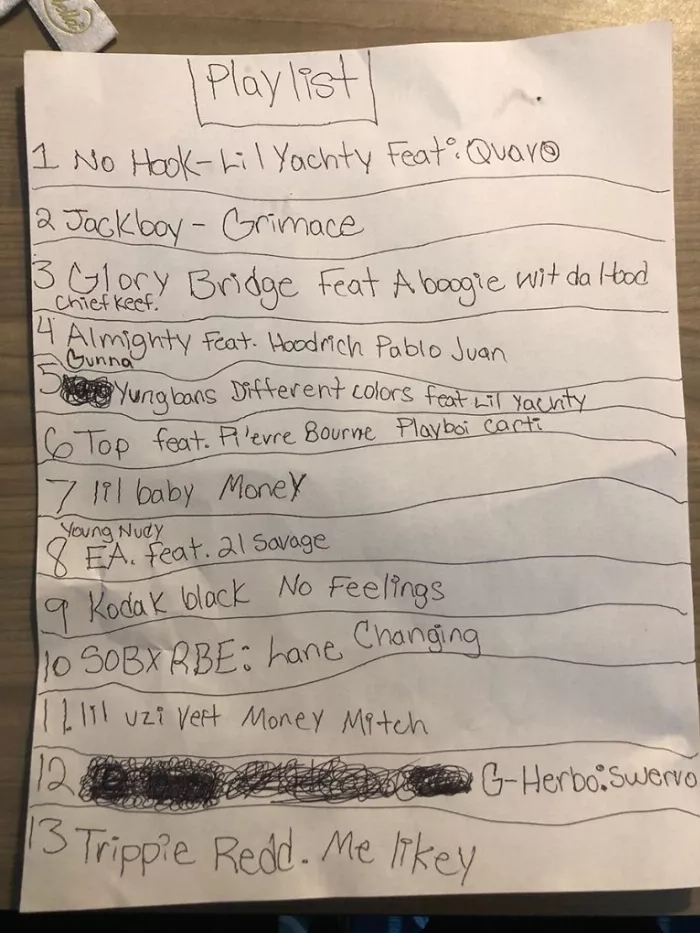 Playlist
1 No Hook-Lil Yachty Feat: Quavo
2 Jackboy - Grimace
3 Glory Bridge Feat A boogie wit da Hood
Chief Keef.
4 Almighty feat. Hoodrich Pablo Juan
Gunna
5 Yungbans Different colors feat Lil Yachty
6 Top feat. Pi'erre Bourne Playboi carti
7 lil baby Money
Young Nudy
8 EA. feat. 21 Savage
9 Kodak black No Feelings
10 SOBX RBE: Lane Changing
11. lil uzi Vert Money Mitch
12 G-Herbo: Swervo
13 Trippie Redd. Me likey